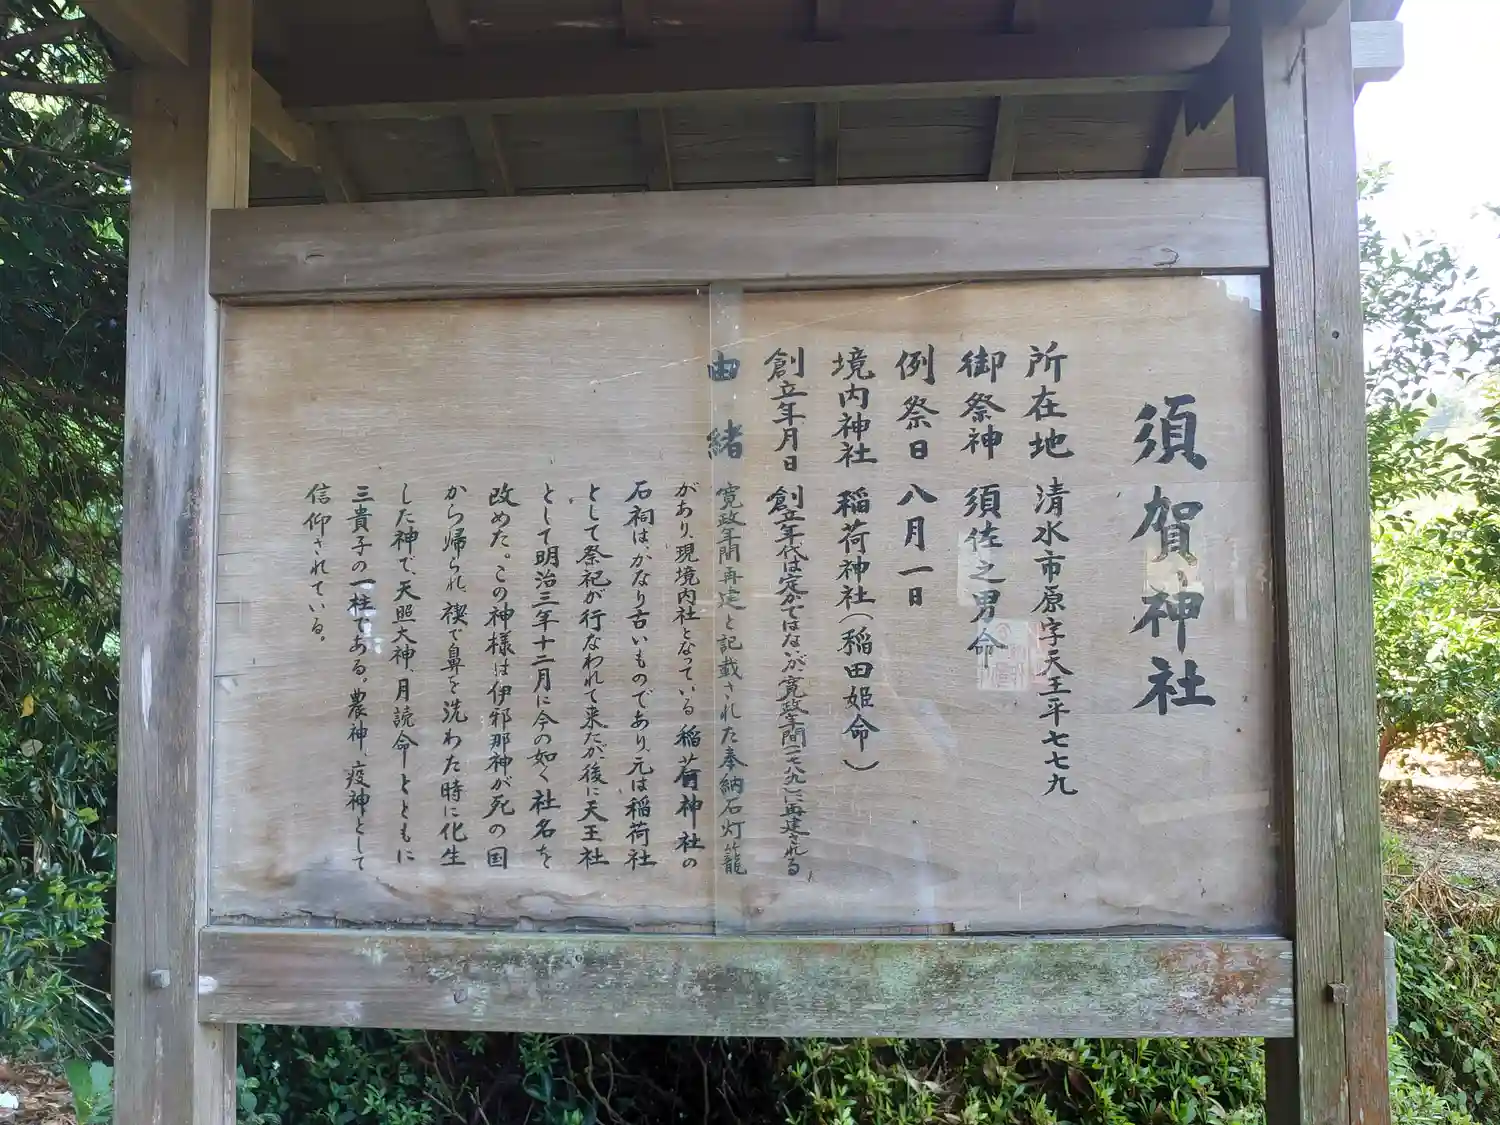 須賀神社
所在地 清水市原字天王平七七九
御祭神 須佐之男命
例祭日 八月一日
境内神社 稲荷神社(稲田姫命)
創立年月日 創立年代は定かではないが寛政年間(一七八九)に再建される
由緒 寛政年間再建と記載された奉納石灯籠
があり、現境内社となっている稲荷神社の
石祠は、かなり古いものであり、元は稲荷社
として祭祀が行なわれて来たが後に天王社
として明治三年十二月に今の如く社名を
改めた。この神様は伊邪那神が死の国
から帰られ、禊で鼻を洗わた時に化生
した神で、天照大神、月読命とともに
三貴子の一柱である。農神、疫神として
信仰されている。